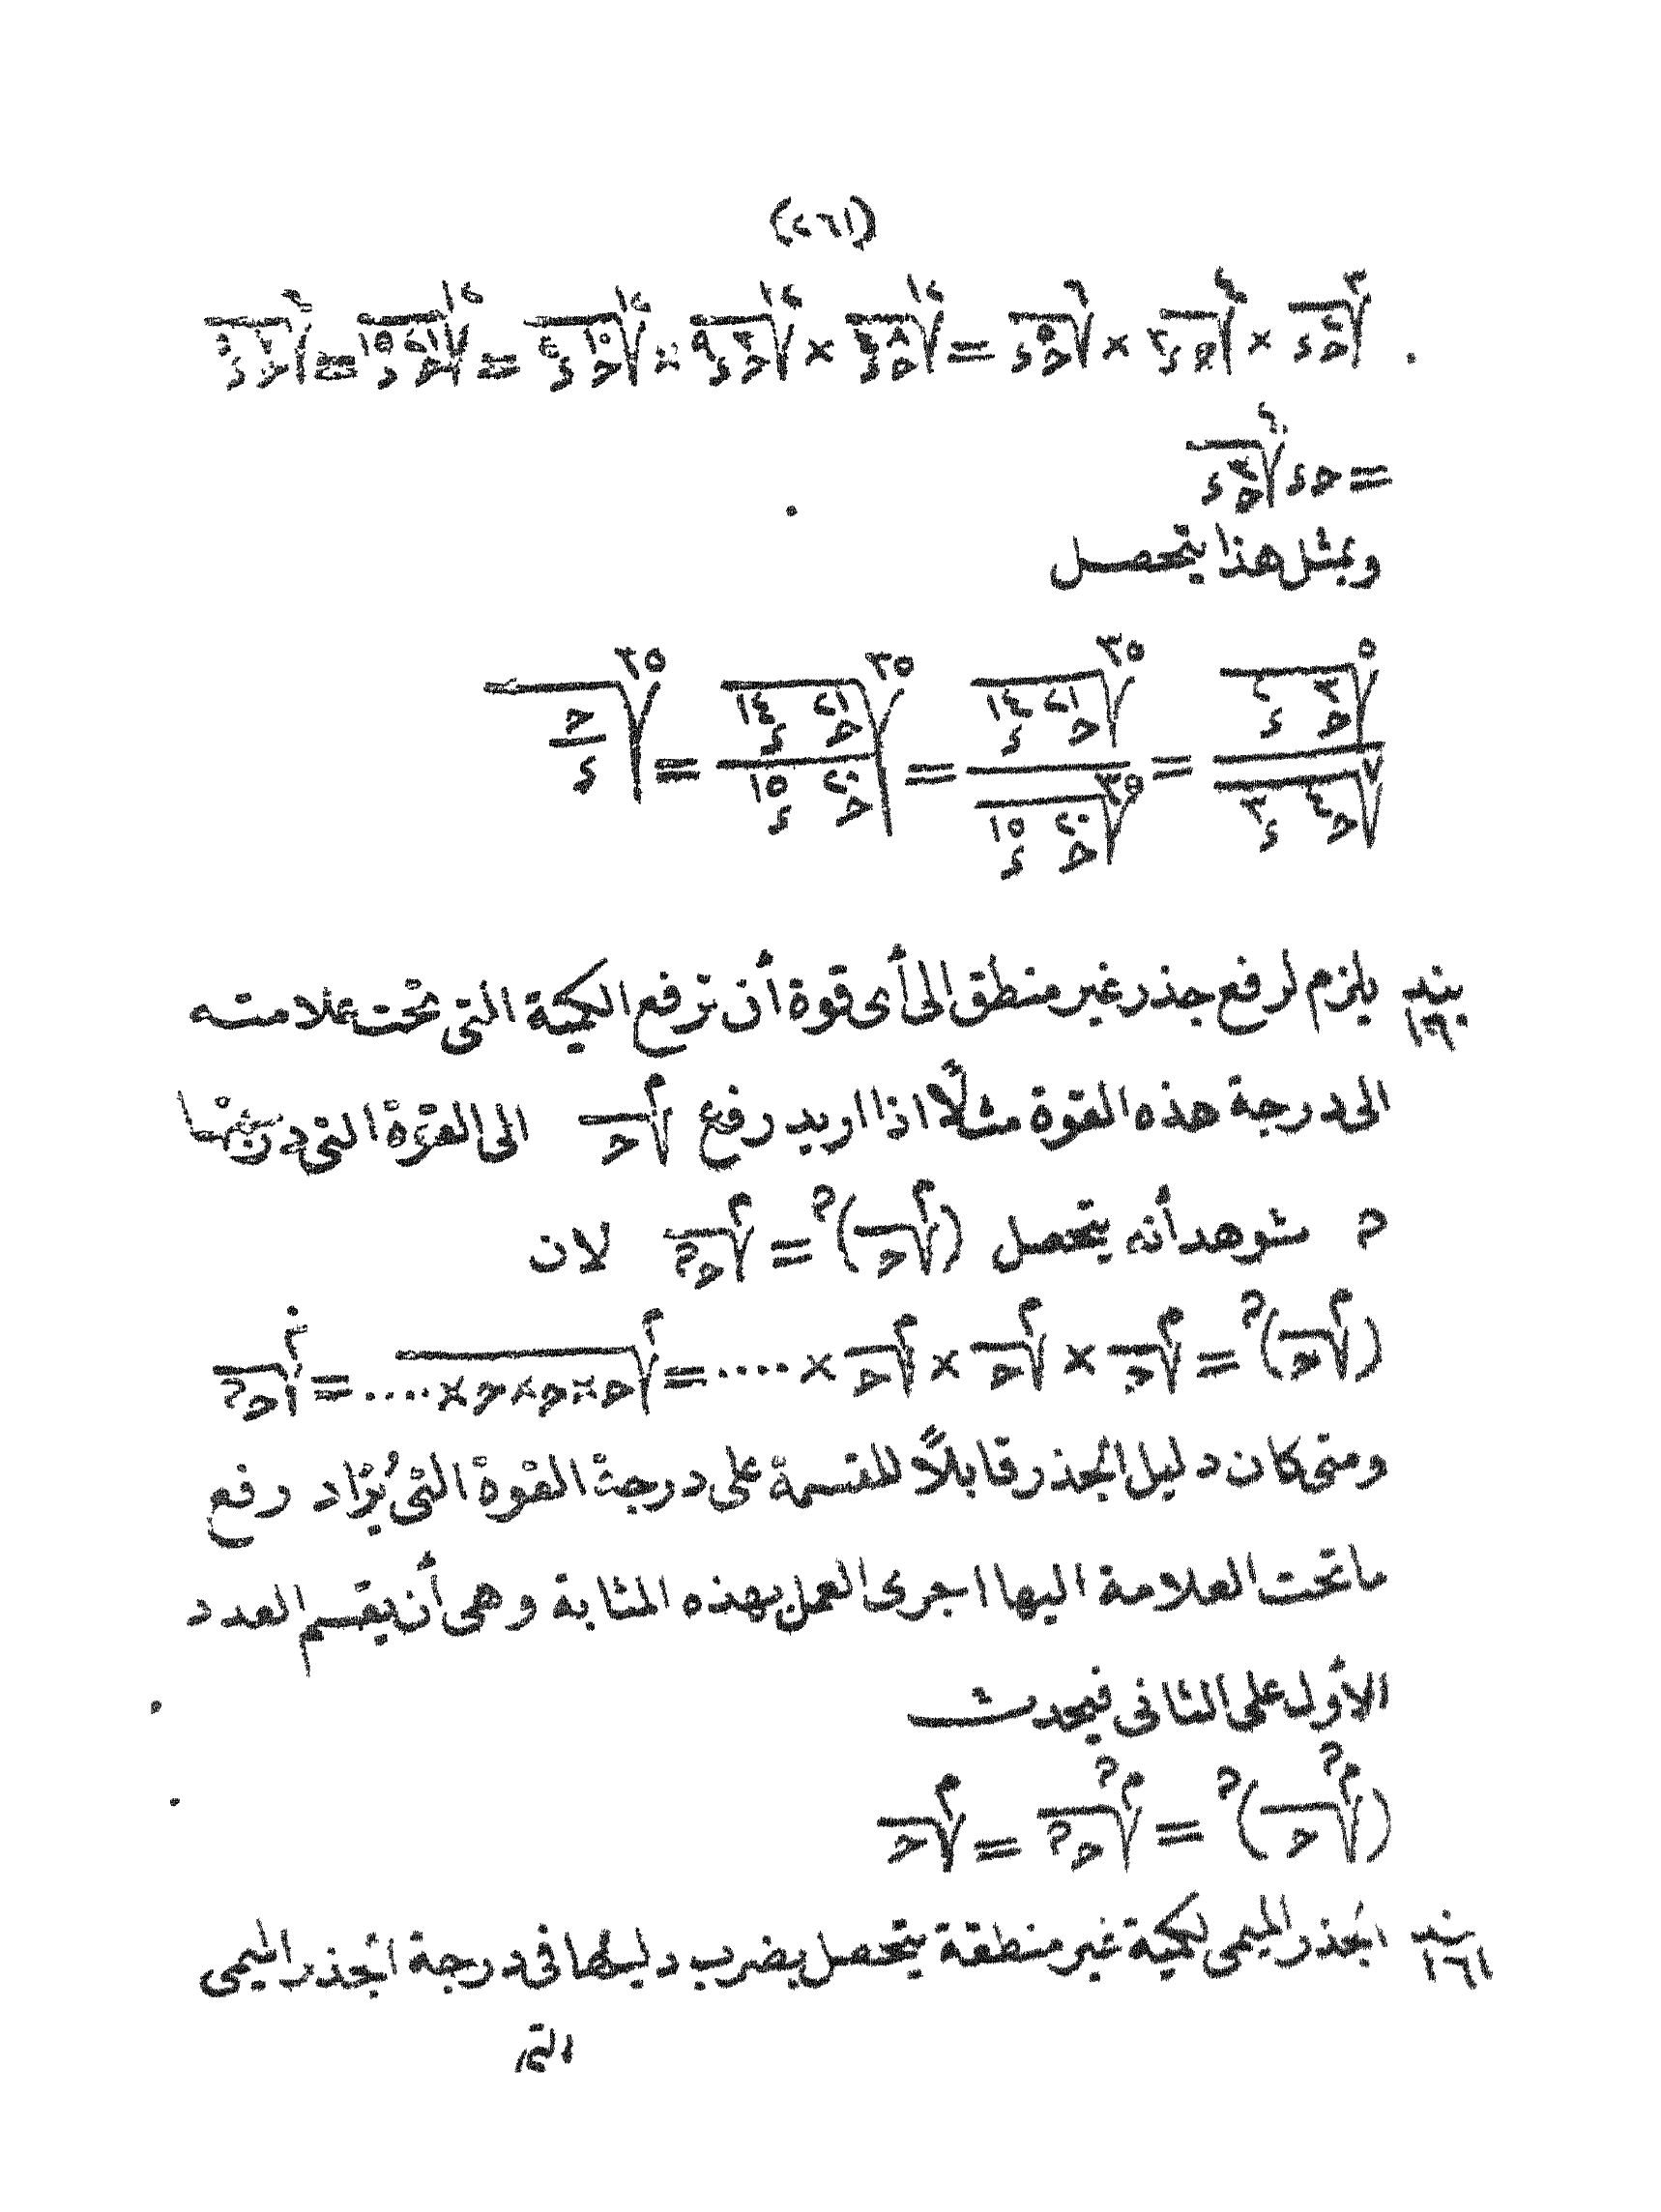 (٢٦١)
∛(ح²د) × ∜(حد³) × ⁶√(ح⁵د) = ¹²√(ح⁸د⁴) × ¹²√(ح³د⁹) × ¹²√(ح¹⁰د²) = ¹²√(ح²¹د¹⁵) = ⁴√(ح⁷د⁵)
= حد ⁴√(ح³د)
وبمثل هذا يتحصل
⁵√(ح³د²) / ⁷√(ح⁴د³) = ³⁵√(ح²¹د¹⁴) / ³⁵√(ح²⁰د¹⁵) = ³⁵√(ح²¹د¹⁴ / ح²⁰د¹⁵) = ³⁵√(ح/د)
بند ١٦٠ يلزم لرفع جذر غير منطق الى أى قوة أن ترفع الكمية التى تحت علامته
الى درجة هذه القوة مثلاً اذا اريد رفع م√ح الى القوة التى درجتها
ﻥ شوهد أنه يتحصل (م√ح)^ﻥ = م√(ح^ﻥ) لان
(م√ح)^ﻥ = م√ح × م√ح × م√ح × .... = م√(ح×ح×ح×....) = م√(ح^ﻥ)
ومتى كان دليل الجذر قابلاً للقسمة على درجة القوة التى يُرَاد رفع
ما تحت العلامة اليها اجرى العمل بهذه المثابة وهى أن يقسم العدد
الأول على الثانى فيحدث
(مﻥ√ح)^ﻥ = مﻥ√(ح^ﻥ) = م√ح
بند ١٦١ الجذر الميمى لكمية غير منطقة يتحصل بضرب دليلها فى درجة الجذر الميمى
التى